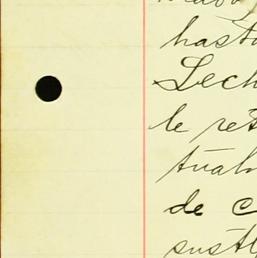 hast
Lech
le ret
tual
de c
sust